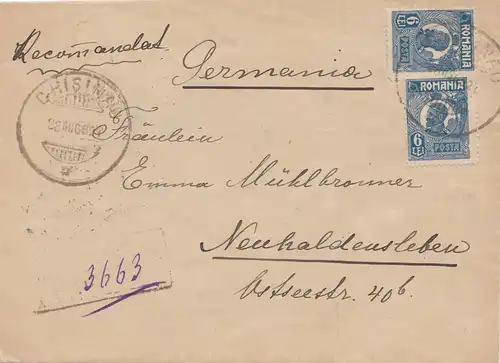 Recomandat.
Germania
ROMANIA
6 LEI POSTA
ROMANIA
6 LEI POSTA
CHISINAU
Fräulein
Emma Mühlbronner
Neuhaldensleben
Ostseestr. 40b.
3663